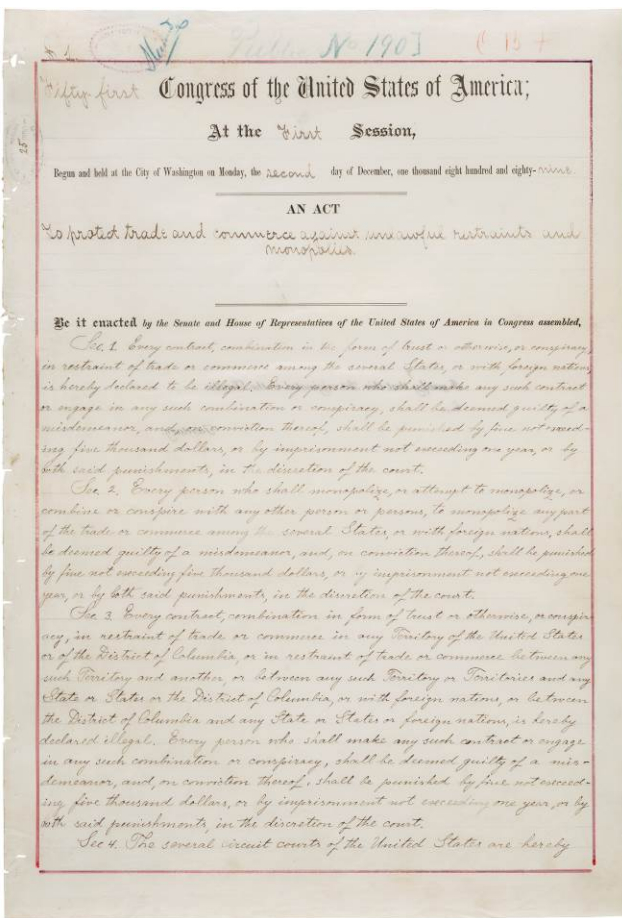 Public No 190]
Fifty-first Congress of the United States of America;
At the First Session,
Begun and held at the City of Washington on Monday, the second day of December, one thousand eight hundred and eighty-nine.
AN ACT
To protect trade and commerce against unlawful restraints and
monopolies.
Be it enacted by the Senate and House of Representatives of the United States of America in Congress assembled,
Sec. 1. Every contract, combination in the form of trust or otherwise, or conspiracy,
in restraint of trade or commerce among the several States, or with foreign nations,
is hereby declared to be illegal. Every person who shall make any such contract
or engage in any such combination or conspiracy, shall be deemed guilty of a
misdemeanor, and, on conviction thereof, shall be punished by fine not exceed-
ing five thousand dollars, or by imprisonment not exceeding one year, or by
both said punishments, in the discretion of the court.
Sec. 2. Every person who shall monopolize, or attempt to monopolize, or
combine or conspire with any other person or persons, to monopolize any part
of the trade or commerce among the several States, or with foreign nations, shall
be deemed guilty of a misdemeanor, and, on conviction thereof, shall be punished
by fine not exceeding five thousand dollars, or by imprisonment not exceeding one
year, or by both said punishments, in the discretion of the court.
Sec. 3. Every contract, combination in form of trust or otherwise, or conspir-
acy, in restraint of trade or commerce in any Territory of the United States
or of the District of Columbia, or in restraint of trade or commerce between any
such Territory and another, or between any such Territory or Territories and any
State or States or the District of Columbia, or with foreign nations, or between
the District of Columbia and any State or States or foreign nations, is hereby
declared illegal. Every person who shall make any such contract or engage
in any such combination or conspiracy, shall be deemed guilty of a mis-
demeanor, and, on conviction thereof, shall be punished by fine not exceed-
ing five thousand dollars, or by imprisonment not exceeding one year, or by
both said punishments, in the discretion of the court.
Sec 4. The several circuit courts of the United States are hereby